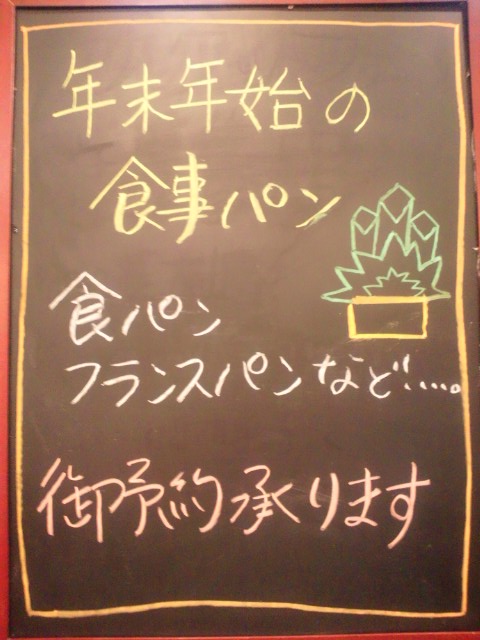 年末年始の
食事パン
食パン
フランスパンなど・・・。
御予約承ります